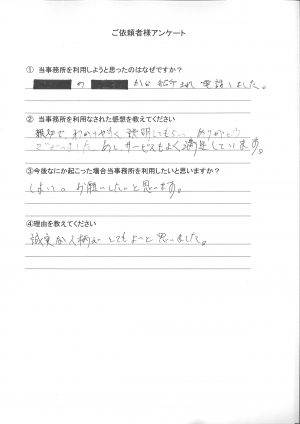 ご依頼者様アンケート
① 当事務所を利用しようと思ったのはなぜですか?
の から紹介され 電話しました。
② 当事務所を利用なされた感想を教えてください
親切で わかりやすく 説明してもらい ありがとう
ございました あと サービスもよく満足しています。
③今後なにか起こった場合当事務所を利用したいと思いますか?
はい。お願いしたいと思います。
④理由を教えてください
誠実な人柄が とてもよいと思いました。